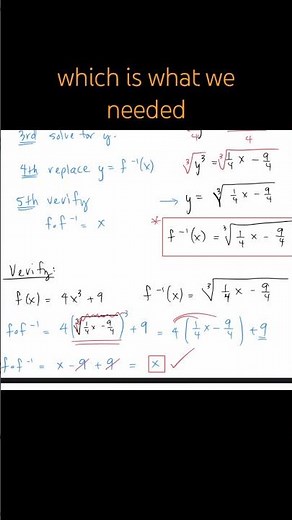 which is what we
needed
3rd solve for y.
4
4
4th replace y = f⁻¹(x)
∛y³ = ∛(1/4 x − 9/4)
5th verify
→ y = ∛(1/4 x − 9/4)
f∘f⁻¹ = x
* f⁻¹(x) = ∛(1/4 x − 9/4)
Verify:
f(x) = 4x³ + 9 f⁻¹(x) = ∛(1/4 x − 9/4)
f∘f⁻¹ = 4(∛(1/4 x − 9/4))³ + 9 = 4(1/4 x − 9/4) + 9
f∘f⁻¹ = x − 9 + 9 = x ✓